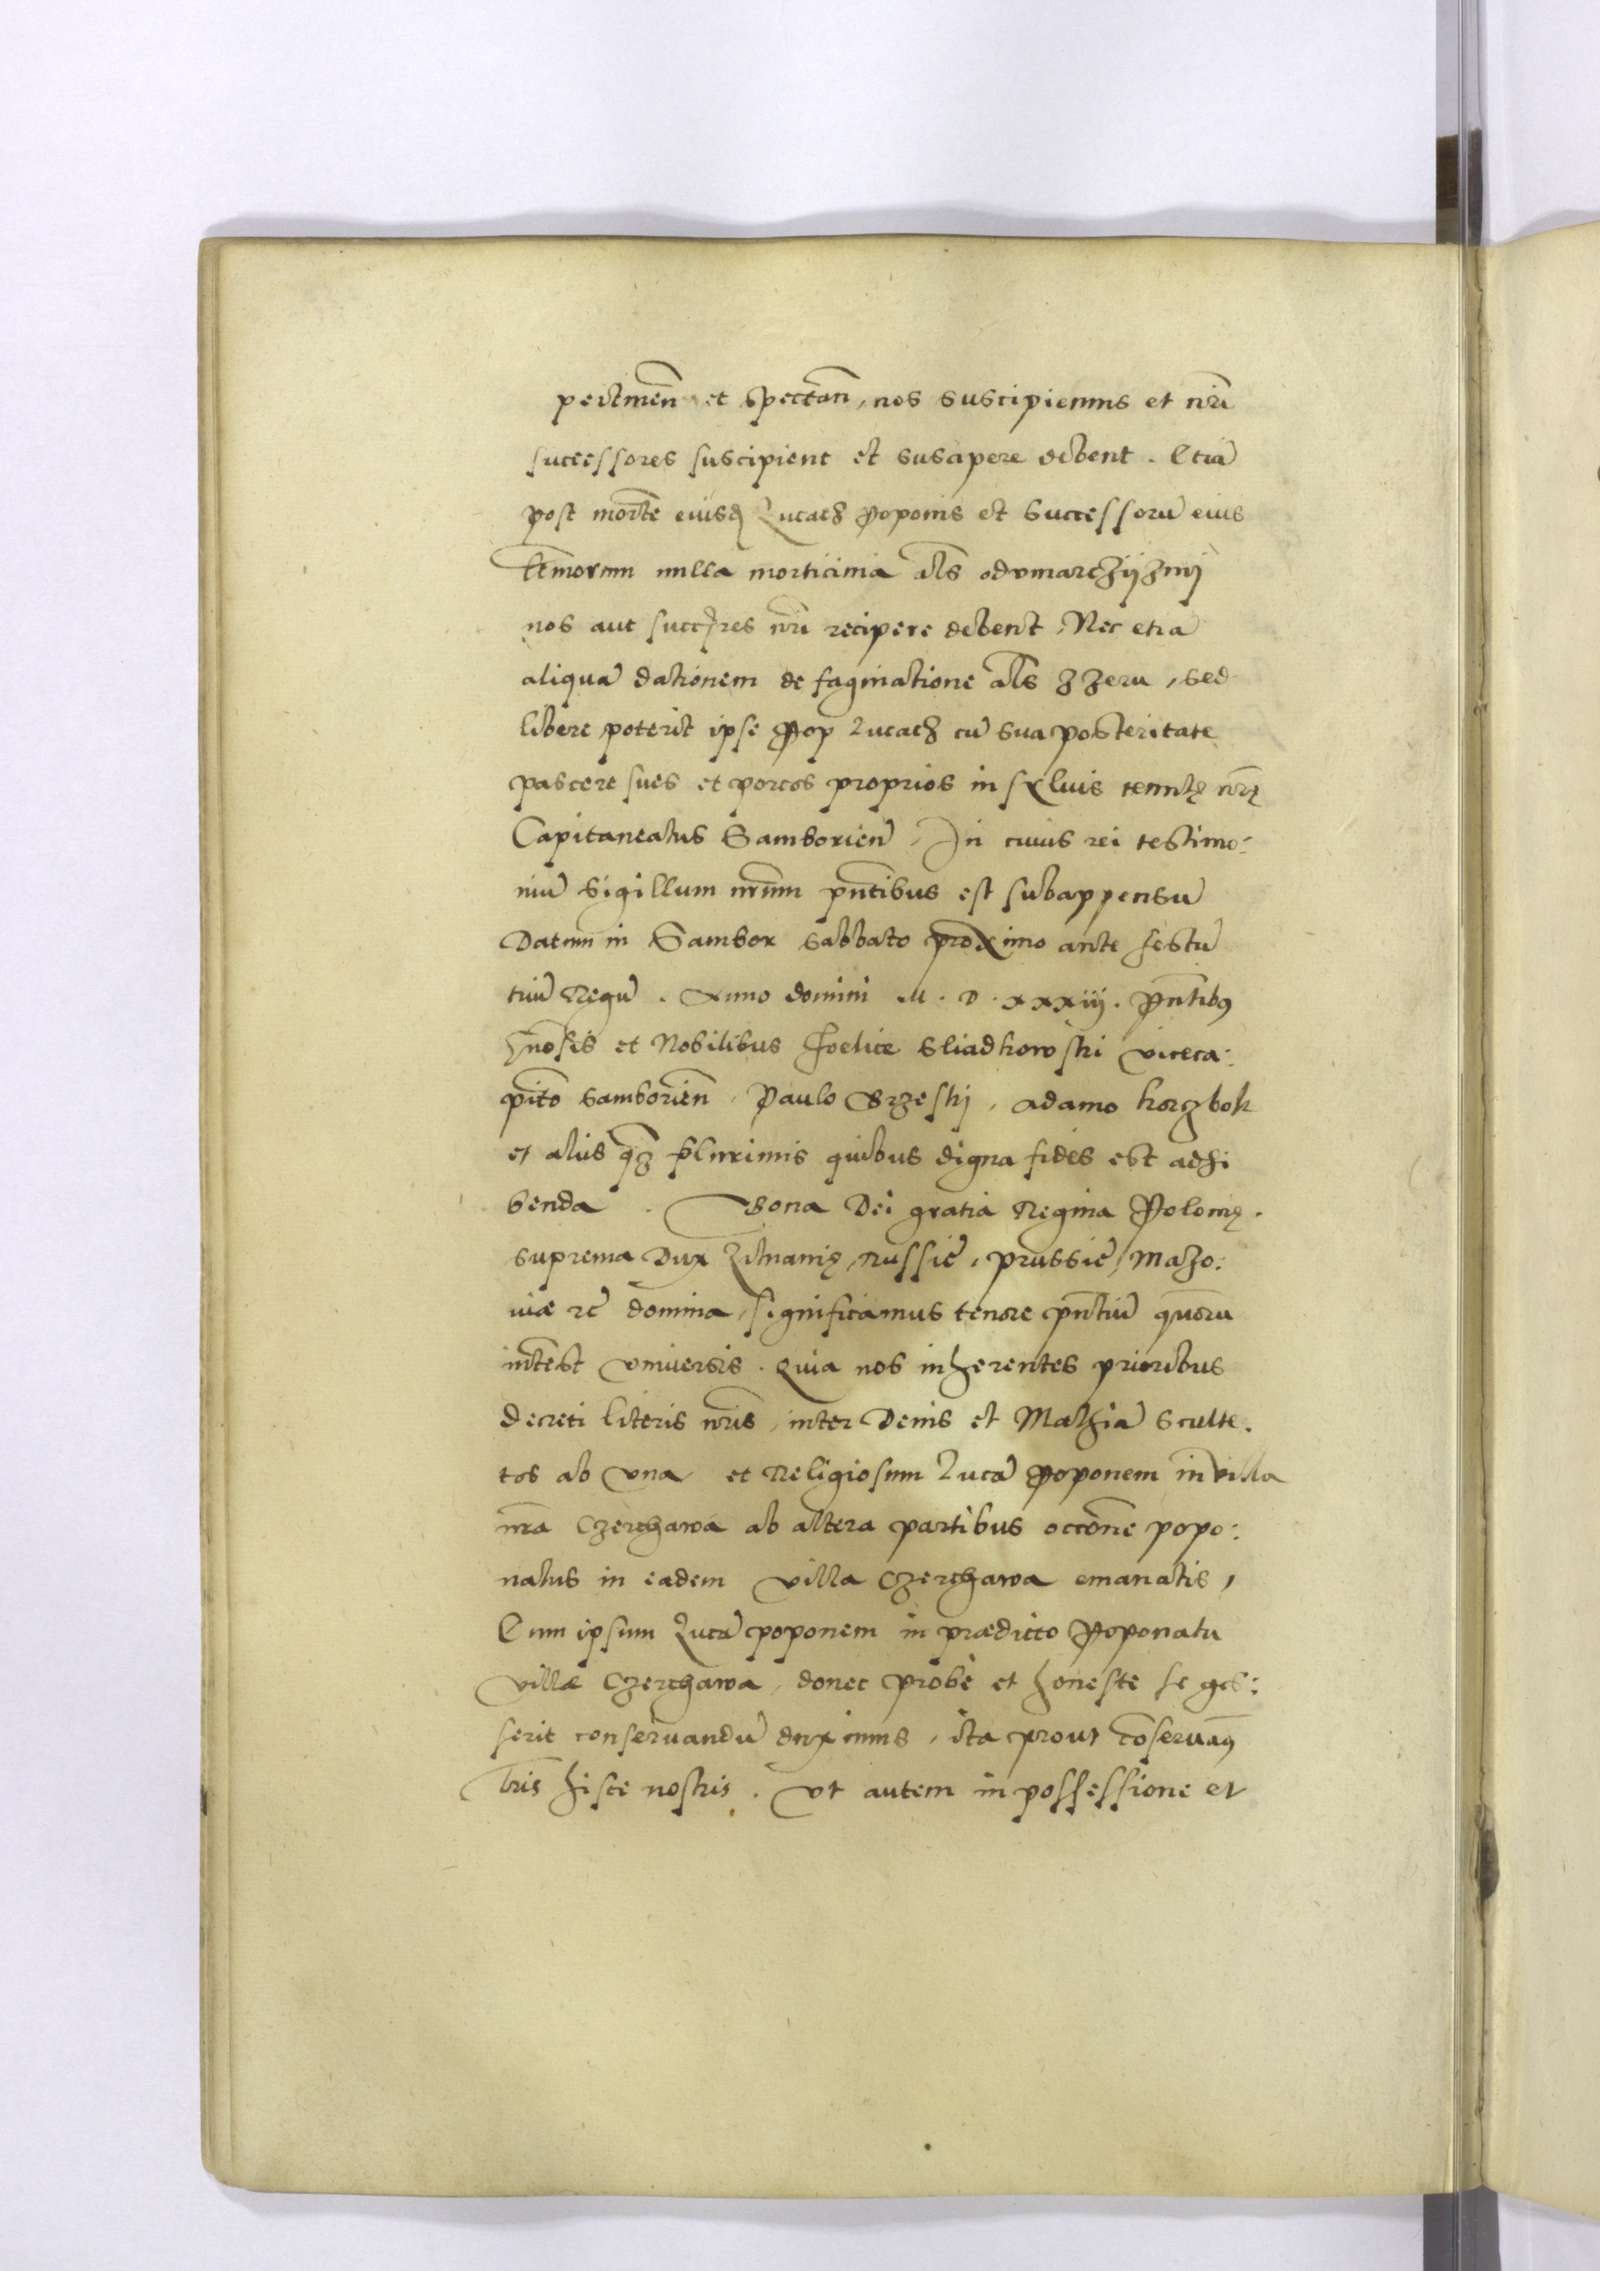 pertinen̄ et spectan̄, nos suscipiemus et nr̄i
successores suscipient et suscipere debent. Etiā
post mortē eiusdē Lucacz Poponis et successorū eius
nulla morticinia al̄s odvmarczijznij
nos aut succ̄res nr̄i recipere debent, Nec etiā
aliquā dationem de saginatione al̄s z zeru, sed
libere poterit ipse Pop Lucacz cū sua posteritate
pascere sues et porcos proprios in sylvis tenutę nr̄ę
Capitaneatus Samborien̄, In cuius rei testimo:
niū sigillum nr̄um pn̄tibus est subappensū
Datum in Sambor sabbato proximo ante festū
triū Regū. Anno domini M. D. xxxiij. Pn̄tibus
gn̄osis et Nobilibus Foelice Sliadkowski viceca:
pit̄o Samborien̄, Paulo Brzeskj, Adamo Korzbok
et aliis qz plurimis quibus digna fides est adhi
benda. Bona Dei gratia Regina Polonię.
suprema Dux Lituanię, Russiē, Prussiē, Mazo:
viæ zc̄ domina, significamus tenore pn̄tiū quorū
int̄est vniuersis. Quia nos inherentes prioribus
decreti literis nr̄is, inter Denis et Mathiā sculte:
tos ab vna et Religiosum Lucā Poponem in villa
nr̄a Czerchawa ab altera partibus occ̄one popo:
natus in eadem villa Czerchawa emanatis,
Eum ipsum Lucā poponem in prædicto Poponatu
villæ Czerchawa, donec probè et honeste se ges:
serit conservandū duximus, ita prout cōservam̄us
lr̄is hisce nostris. Vt autem in possessione et